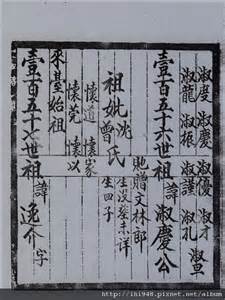 淑度 淑慶 淑優 淑才
淑龍 淑振 淑謹 淑禮 淑卓
壹百五十六世祖 諱 淑慶公
馳贈文林郎
生沒葬未詳
生四子
祖妣沈曾氏
懷道 懷冢
懷莞 懷以
來臺始祖
壹百五十七世祖 諱 逸介 字
http://ihi948.pixnet.net/album